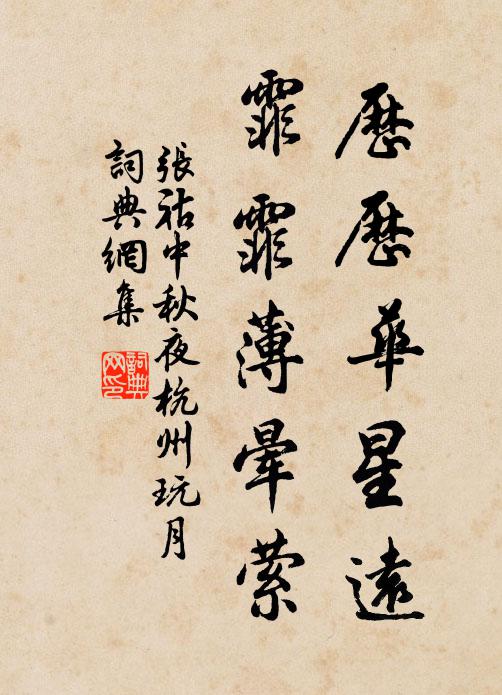 歷歷華星遠
霏霏薄暈縈
張祜中秋夜杭州玩月
詞典網集
詞典網印